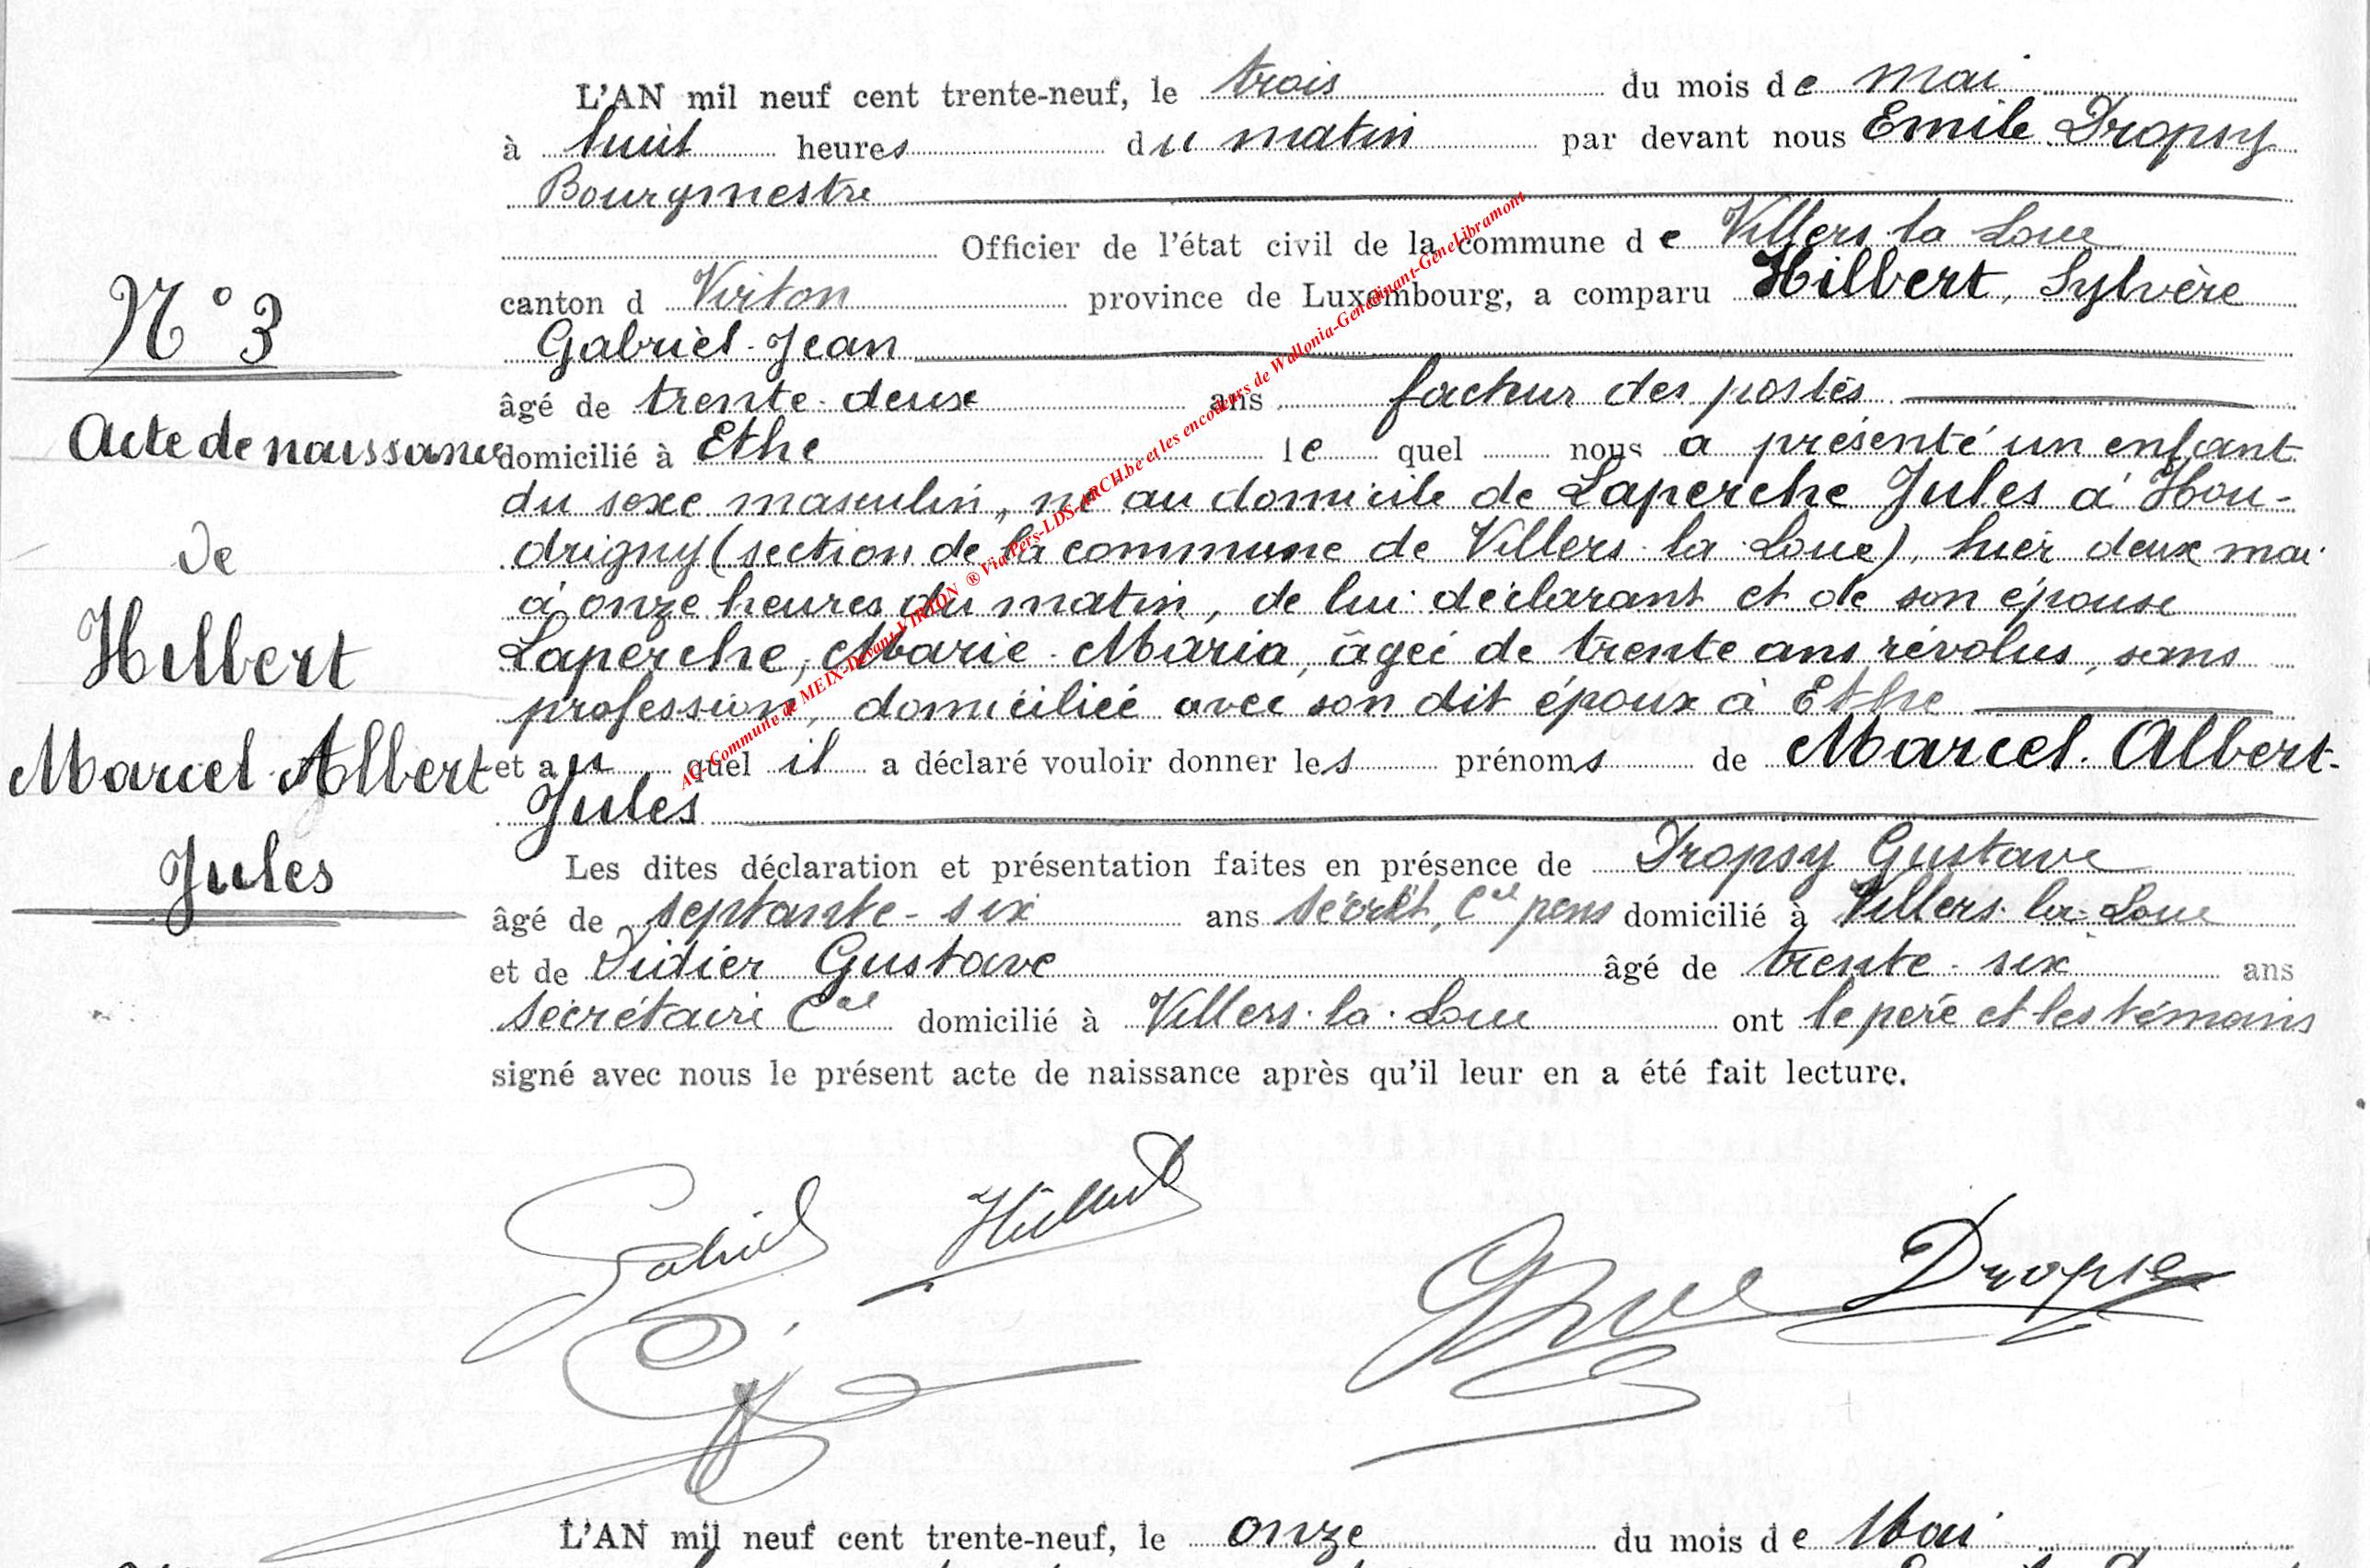 L'AN mil neuf cent trente-neuf, le trois du mois de mai
à huit heures du matin par devant nous Emile Dropsy
Bourgmestre
Officier de l'état civil de la commune de Villers-la-Loue
canton d Virton province de Luxembourg, a comparu Hilbert, Sylvère
Gabriel-Jean
âgé de trente-deux ans facteur des postes
domicilié à Ethe lequel nous a présenté un enfant
du sexe masculin, né au domicile de Laperche Jules à Hou-
drigny (section de la commune de Villers-la-Loue), hier deux mai
à onze heures du matin, de lui déclarant et de son épouse
Laperche, Marie-Maria, âgée de trente ans révolus, sans
profession, domiciliée avec son dit époux à Ethe
et auquel il a déclaré vouloir donner les prénoms de Marcel-Albert-
Jules
Les dites déclaration et présentation faites en présence de Dropsy Gustave
âgé de septante-six ans secrét, Cal pens domicilié à Villers-la-Loue
et de Didier Gustave âgé de trente-six ans
secrétaire Cal domicilié à Villers-la-Loue ont le père et les témoins
signé avec nous le présent acte de naissance après qu'il leur en a été fait lecture.
N° 3
Acte de naissance
de
Hilbert
Marcel-Albert
Jules
AG-Commune de MEIX-Devant-VIRTON ® Via Pers-LDS-ARCH.be et les encodeurs de Wallonia-Genedinant-GeneLibramont
Gabriel Hilbert
Dropsy
L'AN mil neuf cent trente-neuf, le onze du mois de Mai